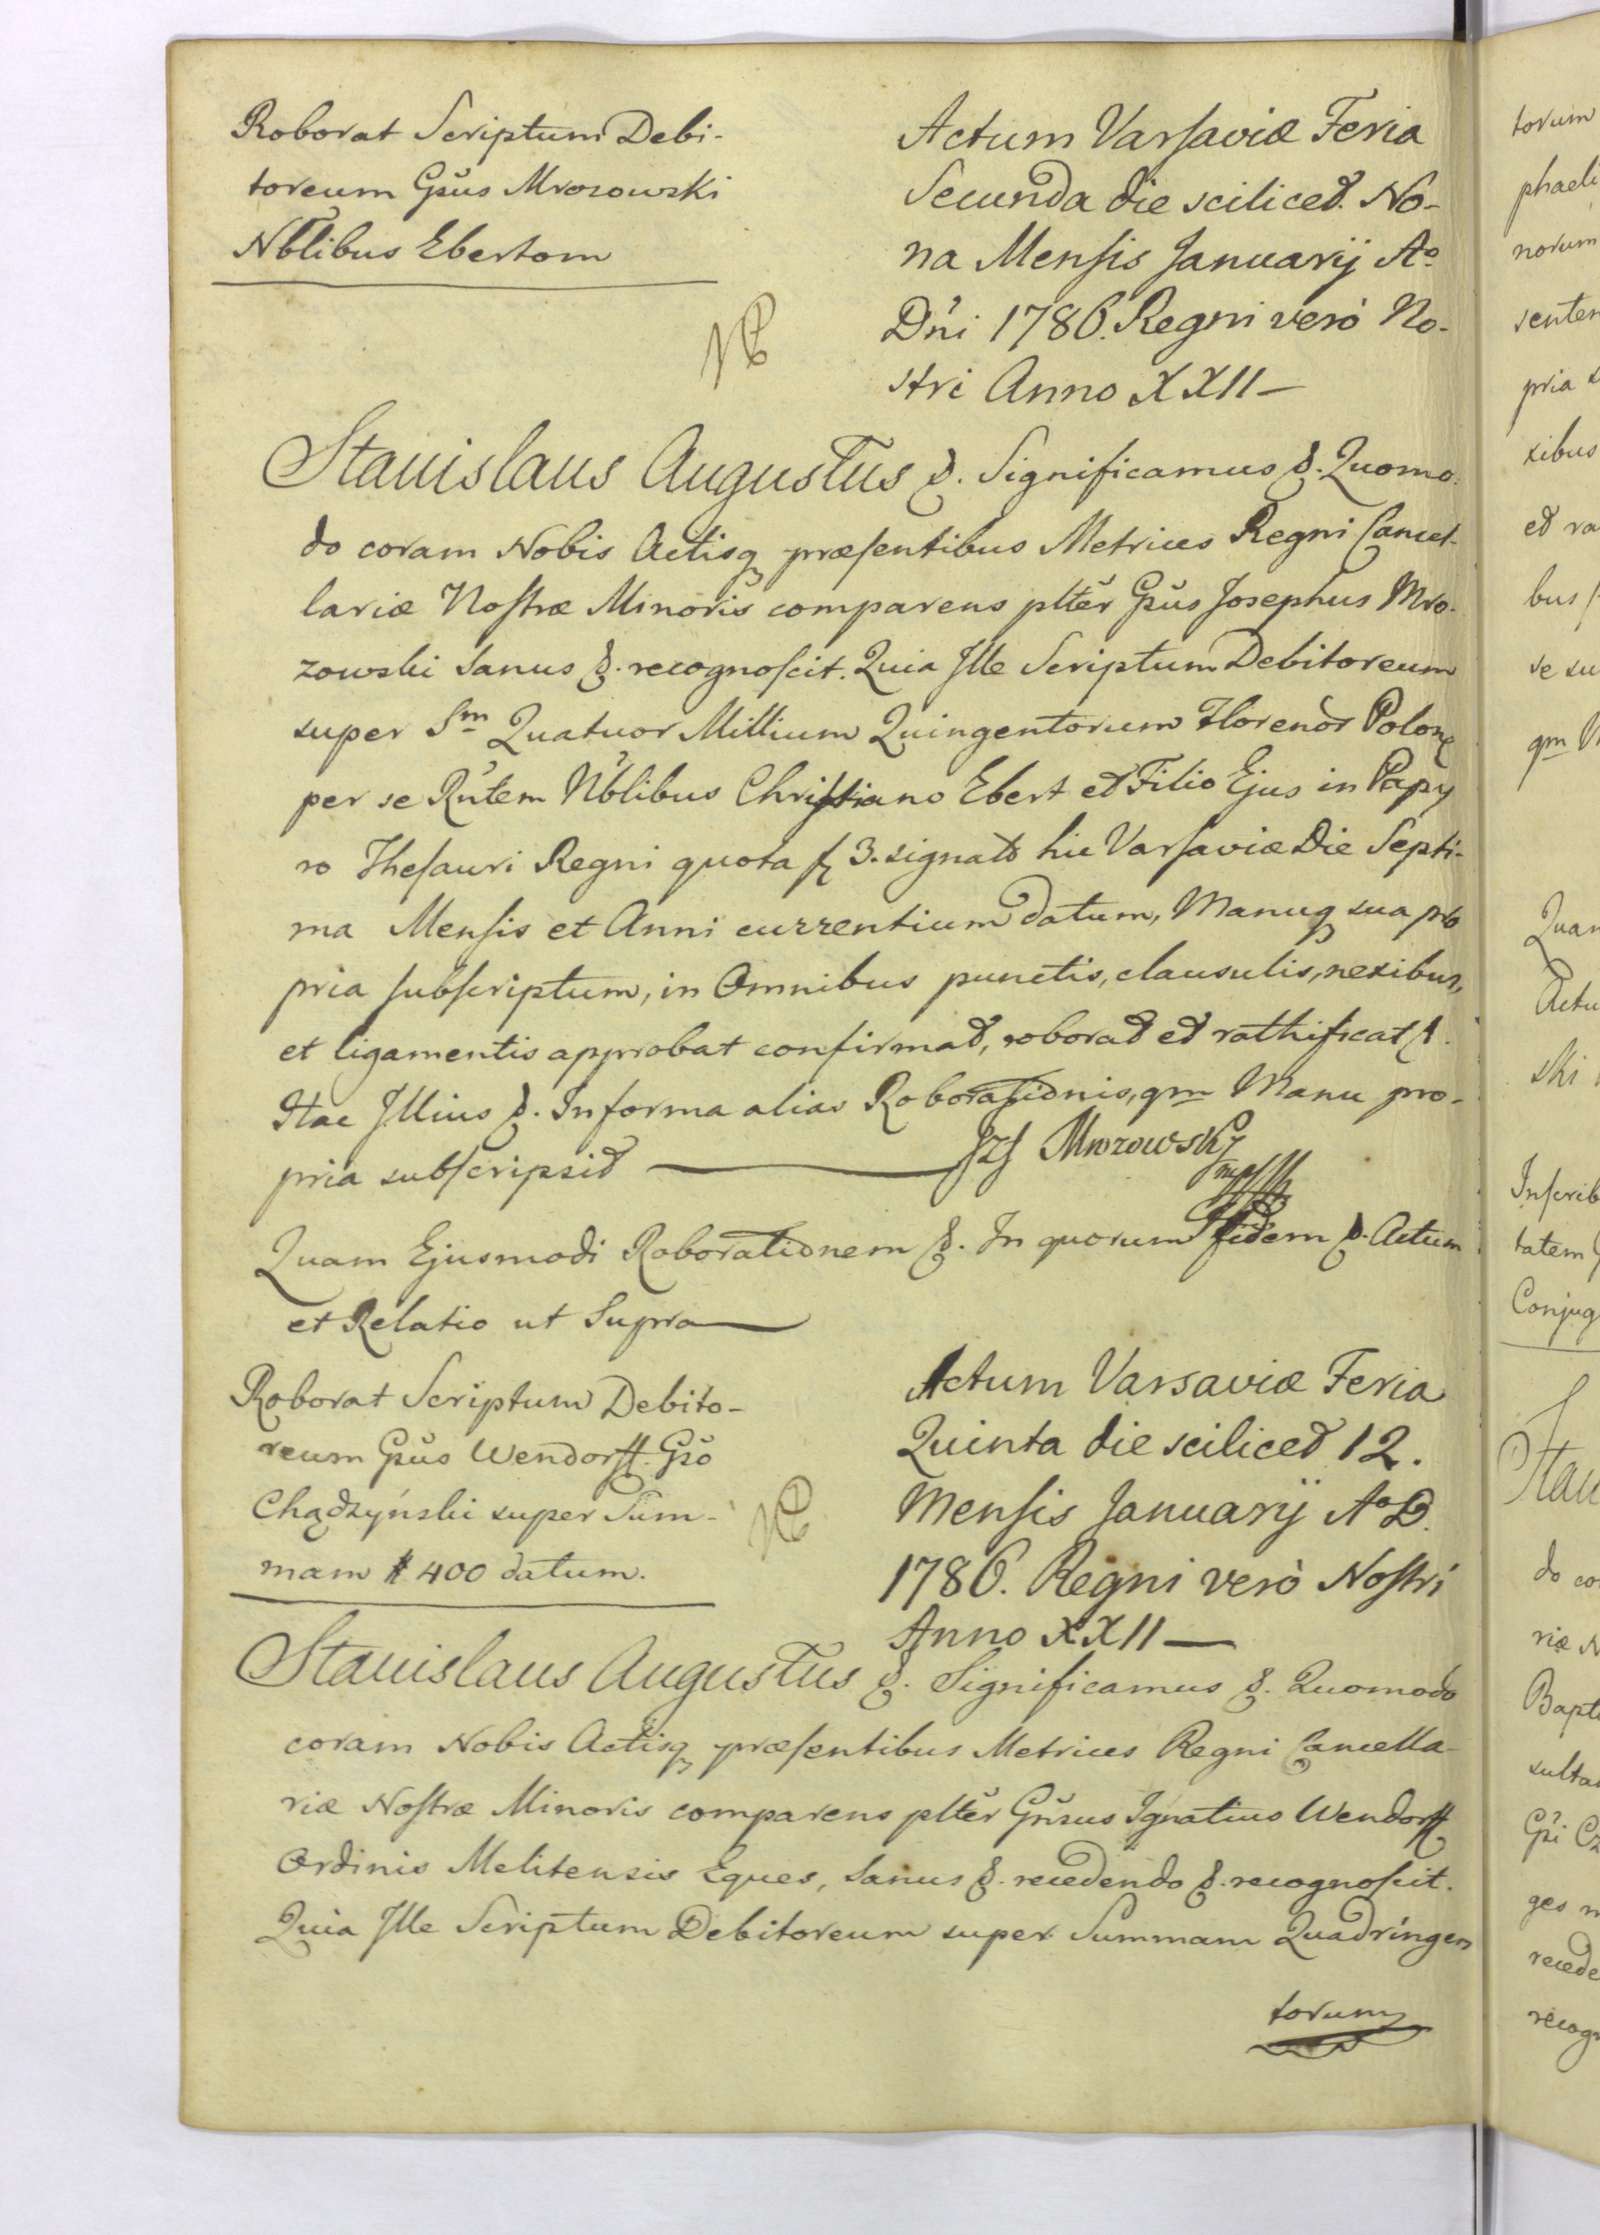 Roborat Scriptum Debi-
toreum Gsus Mrozowski
Nblibus Ebertom
Actum Varsaviæ Feria
Secunda die scilicet No-
na Mensis Januarij Ao
Dni 1786. Regni verò No-
stri Anno XXII—
Stanislaus Augustus &. Significamus &. Quomo-
do coram Nobis Actisq præsentibus Metrices Regni Cancel-
lariæ Nostræ Minoris comparens plter Gsus Josephus Mro-
zowski Sanus &. recognoscit. Quia Ille Scriptum Debitoreum
super Sm Quatuor Millium Quingentorum Florenor Polon
per se Rntem Nblibus Christiano Ebert et Filio Ejus in Papy
ro Thesauri Regni quota f 3. signato hic Varsaviæ Die Septi-
ma Mensis et Anni currentium datum, Manuq sua pro
pria subscriptum, in Omnibus punctis, clausulis, nexibus,
et ligamentis approbat confirmat, roborat et rathificat
Itac Illius &. In forma alias Roborationis, qm Manu pro-
pria subscripsit — Jzf Mrozowsky
mp
Quam Ejusmodi Roborationem &. In quorum fidem &. Actum
et Relatio ut Supra—
Roborat Scriptum Debito-
reum Gsus Wendorff. Gso
Chądzyński super Sum-
mam # 400 datum.
Actum Varsaviæ Feria
Quinta die scilicet 12.
Mensis Januarij Ao D.
1786. Regni verò Nostri
Anno XXII—
Stanislaus Augustus &. Significamus &. Quomodo
coram Nobis Actisq præsentibus Metrices Regni Cancella-
riæ Nostræ Minoris comparens plter Gnsus Ignatius Wendorff
Ordinis Melitensis Eques, Sanus &. recedendo &. recognoscit.
Quia Ille Scriptum Debitoreum super Summam Quadringen
torum
torum
phaeli
norum
senten
pria
xibus
et ra
bus
se su
qm
Quam
Actu
ski
Inscrib
tatem
Conjug
Stan
do co
riæ N
Bapt
sulta
Gsi Cz
ges
recede
recog